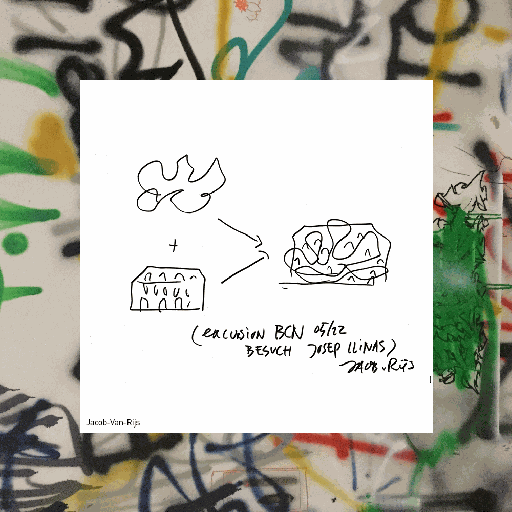 +
(excusion BCN 05/22
BESUCH JOSEP LLINAS)
JACOB v. RIJS
Jacob-Van-Rijs